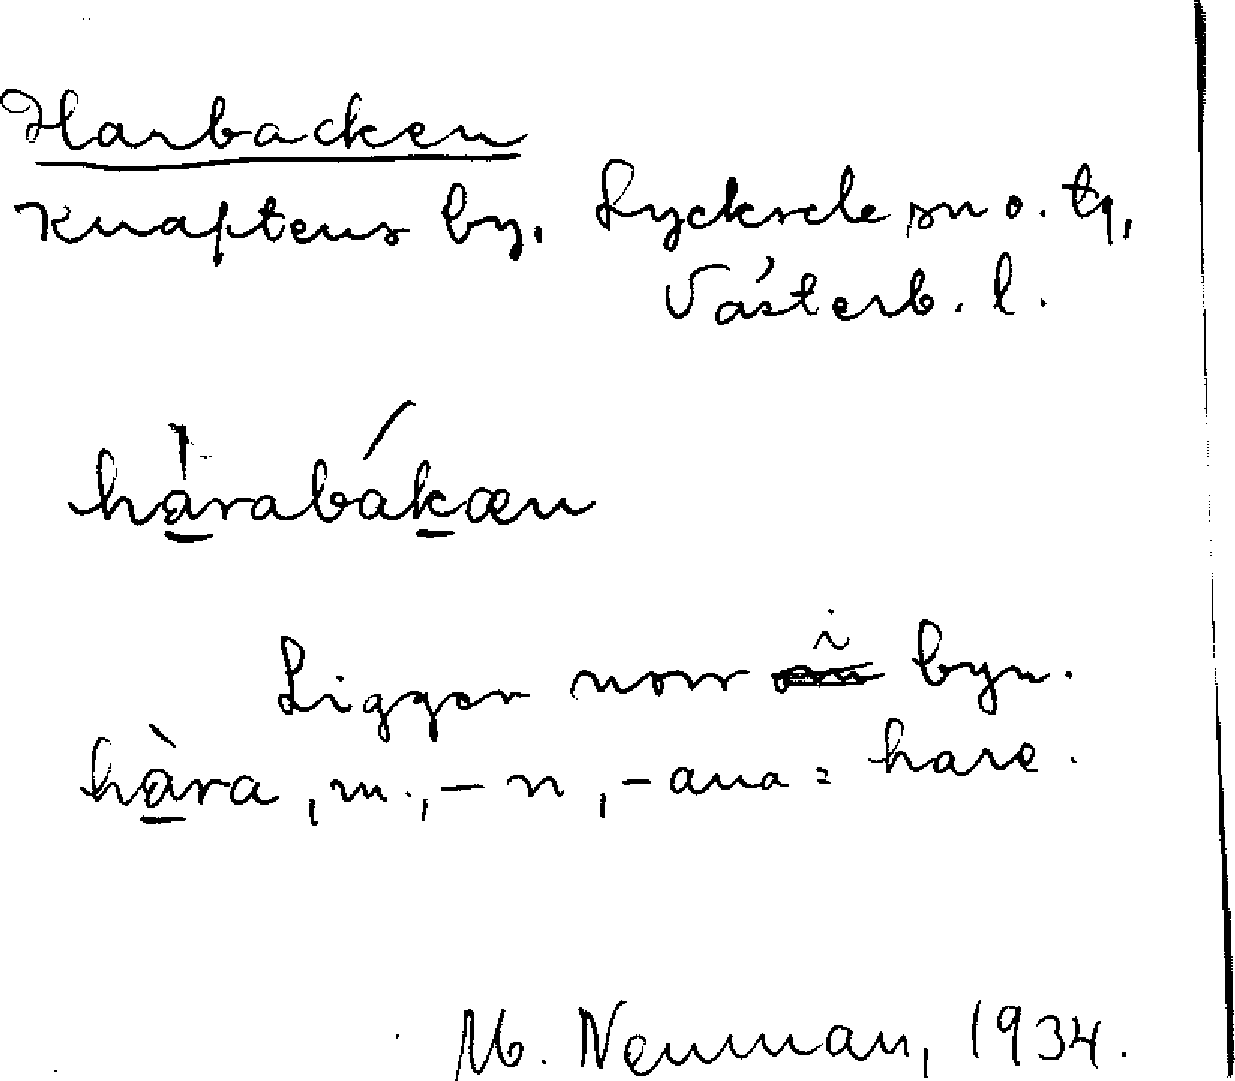 Harbacken
Knaftens by. Lycksele sn o. tg,
Västerb. l.
hàrabákæn
Ligger norr i byn.
hàra, m., -n, -ana = hare.
M. Nenman, 1934.